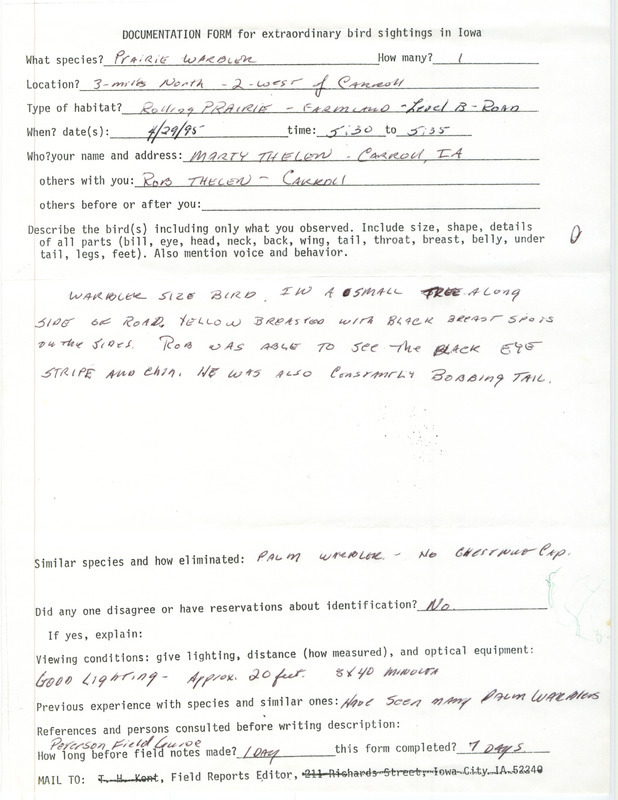 DOCUMENTATION FORM for extraordinary bird sightings in Iowa
What species? PRAIRIE WARBLER How many? 1
Location? 3-miles North - 2-west of CARROLL
Type of habitat? Rolling PRAIRIE - FARMLAND - Level B - ROAD
When? date(s): 4/29/95 time: 5:30 to 5:35
Who?your name and address: MARTY THELEN - CARROLL, IA
others with you: ROB THELEN - CARROLL
others before or after you:
Describe the bird(s) including only what you observed. Include size, shape, details
of all parts (bill, eye, head, neck, back, wing, tail, throat, breast, belly, under
tail, legs, feet). Also mention voice and behavior.
WARBLER SIZE BIRD. IN A SMALL TREE ALONG
SIDE OF ROAD. YELLOW BREASTED WITH BLACK BREAST SPOTS
ON THE SIDES. ROB WAS ABLE TO SEE The BLACK EYE
STRIPE AND Chin. HE WAS ALSO CONSTANTLY BOBBING TAIL.
Similar species and how eliminated: PALM WARBLER - NO CHESTNUT CAP.
Did any one disagree or have reservations about identification? No
If yes, explain:
Viewing conditions: give lighting, distance (how measured), and optical equipment:
GOOD LIGHTING - Approx. 20 feet. 8X40 MINOLTA
Previous experience with species and similar ones: HAVE SEEN MANY PALM WARBLERS
References and persons consulted before writing description:
Peterson Field Guide
How long before field notes made? 1 DAY this form completed? 7 DAYS
MAIL TO: T. H. Kent, Field Reports Editor, 211 Richards Street, Iowa City, IA 52240